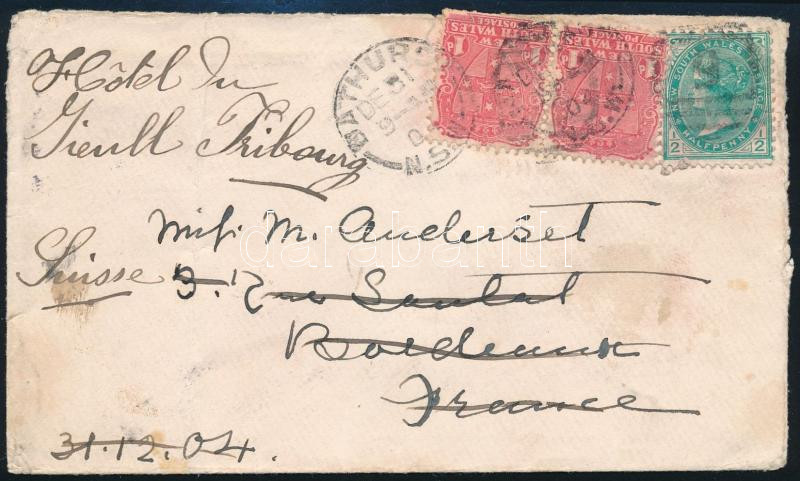 Hôtel du
Gieull Fribourg
Suisse
Miss M. Anderset
9. Rue Sautal
Bordeaux
France
31.12.04.
BATHURST
DE 31
N.S.W
NEW SOUTH WALES
POSTAGE
1
NEW SOUTH WALES
POSTAGE
1
NEW SOUTH WALES POSTAGE
1/2 HALFPENNY 1/2
darabanth